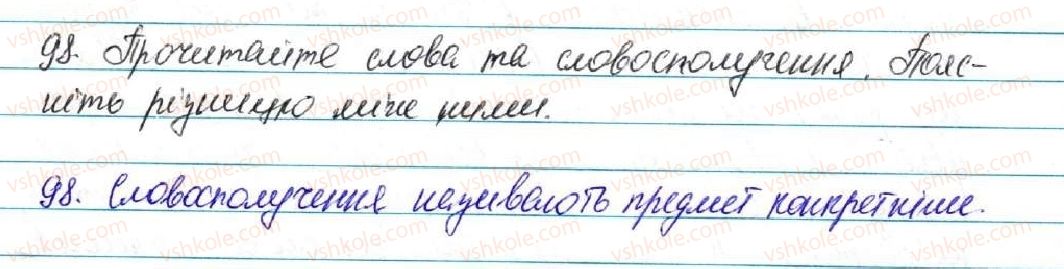 98. Прочитайте слова та словосполучення. Пояс-
ніть різницю між ними.
98. Словосполучення називають предмет конкретніше.